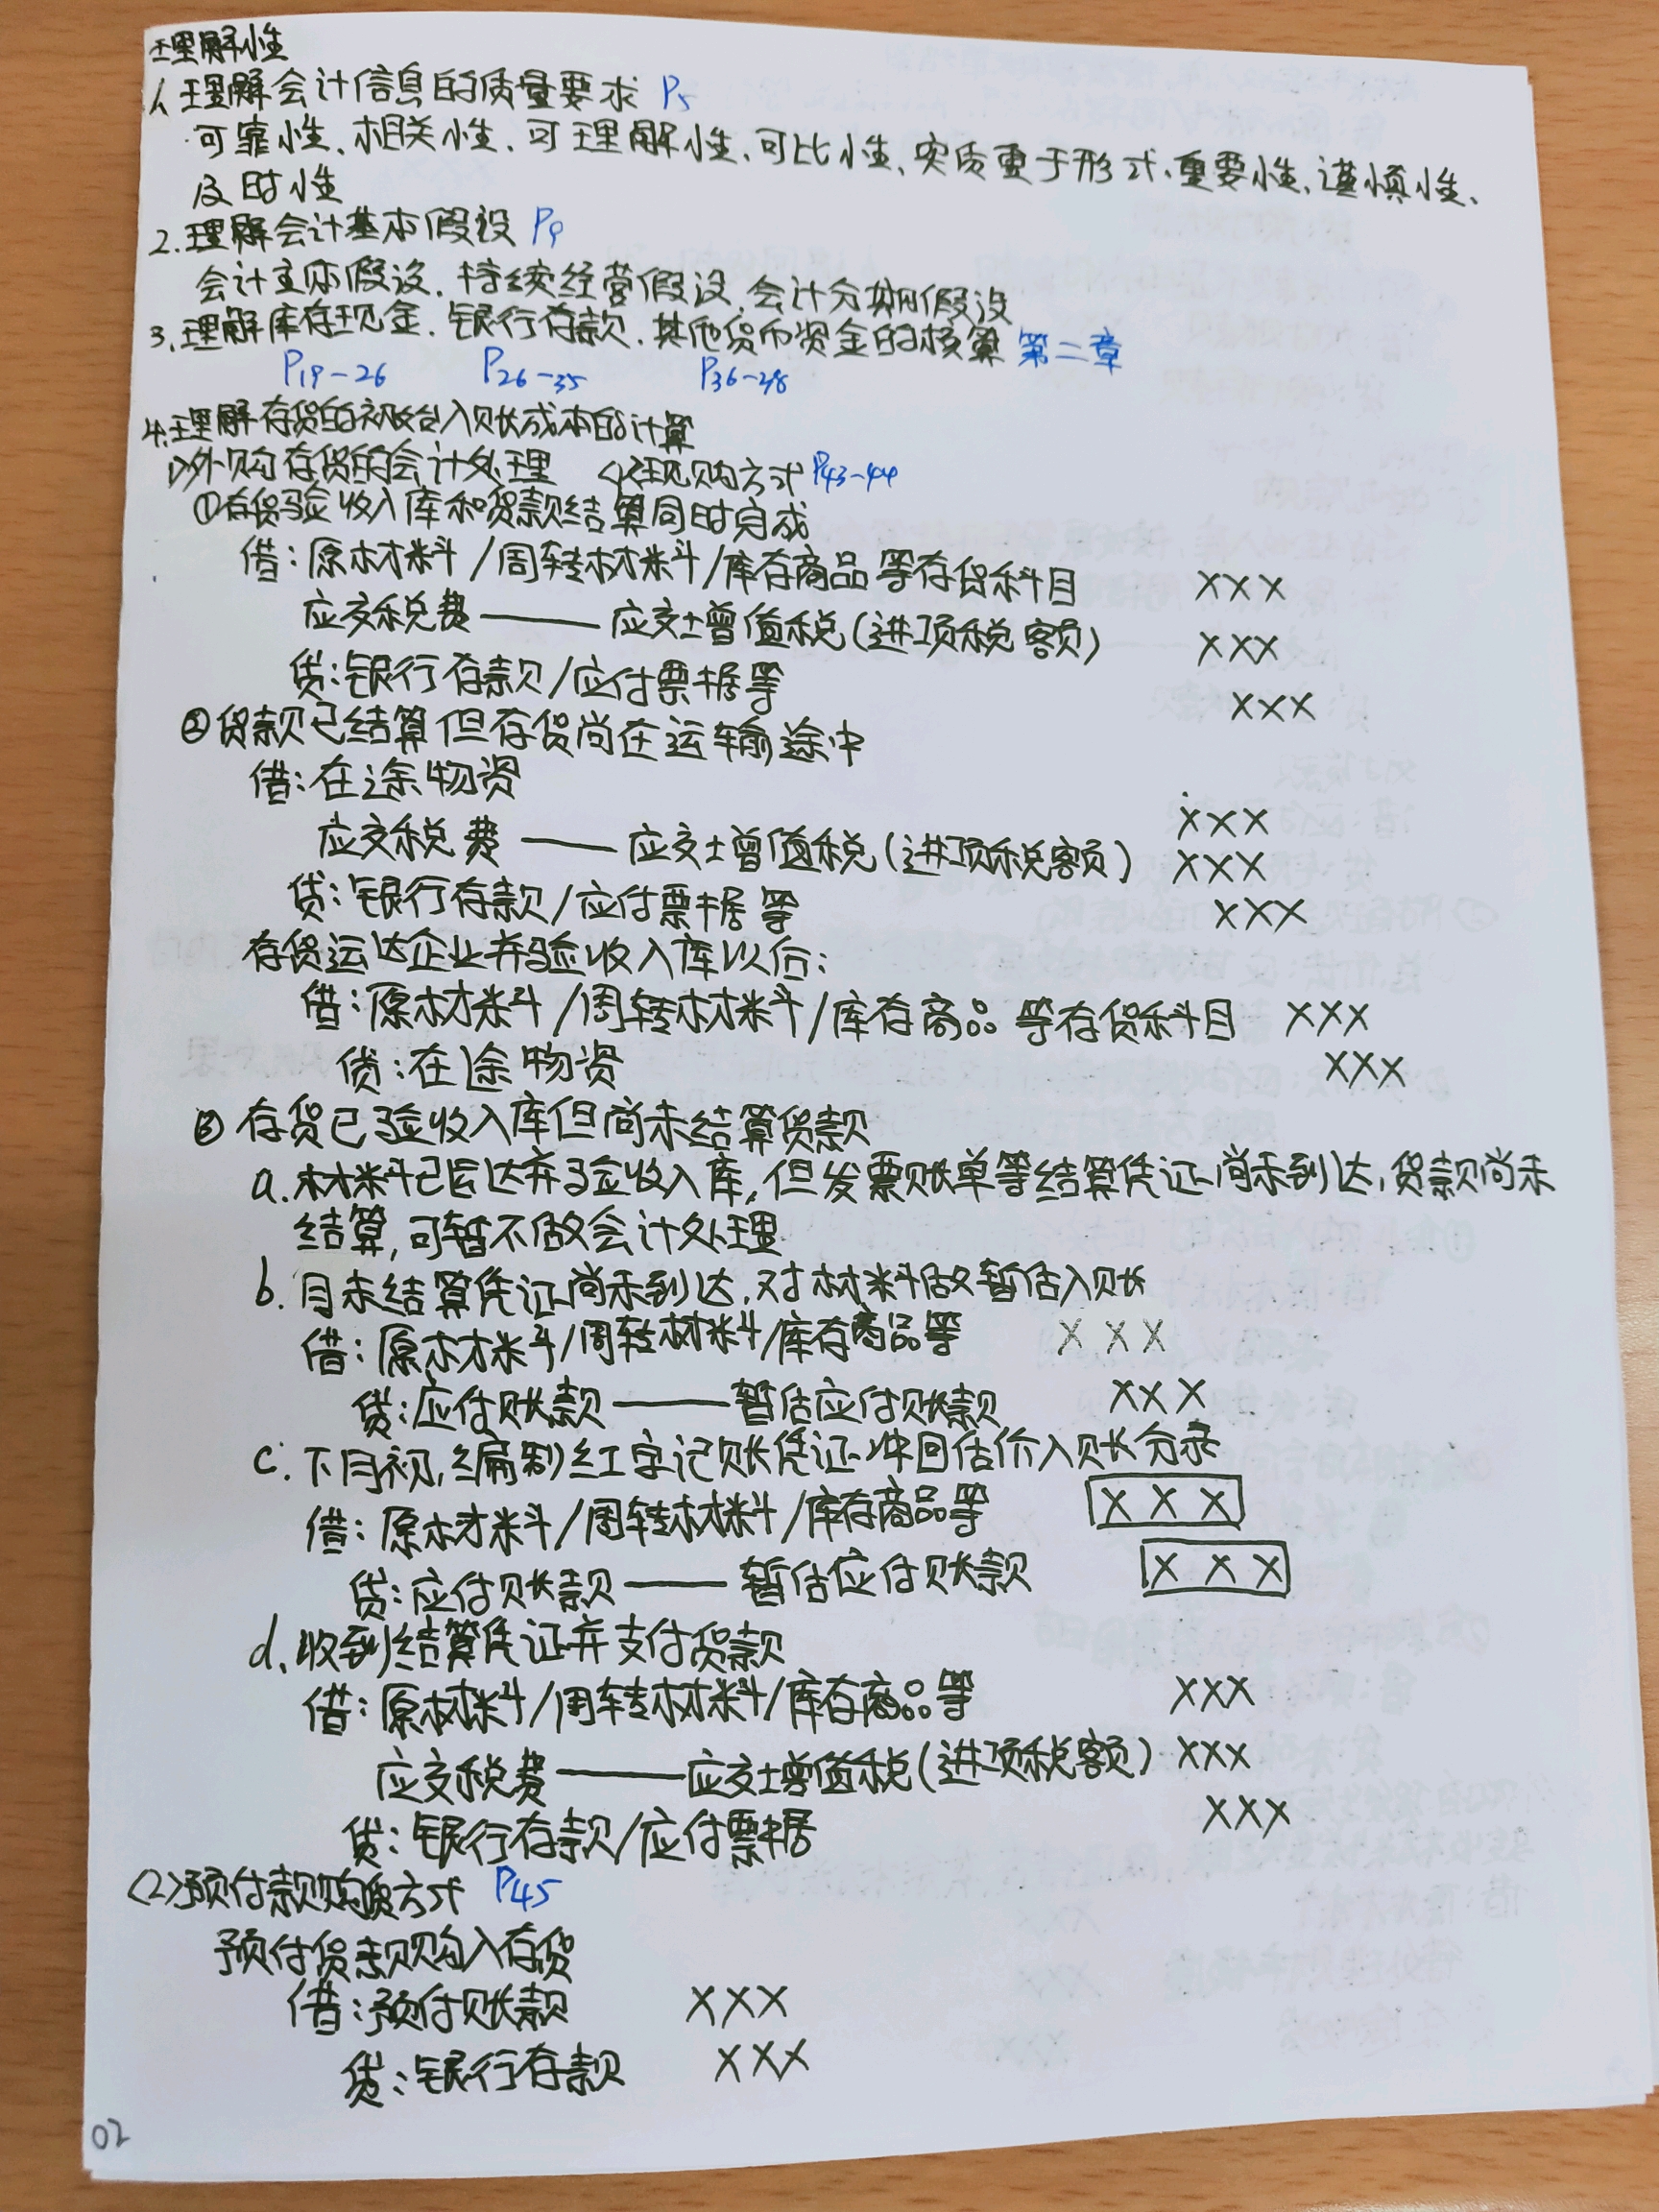 理解性
1.理解会计信息的质量要求 P5
可靠性、相关性、可理解性、可比性、实质重于形式、重要性、谨慎性、
及时性
2.理解会计基本假设 P9
会计主体假设、持续经营假设、会计分期假设
3.理解库存现金、银行存款、其他货币资金的核算 第二章
P19-26 P26-35 P36-38
4.理解存货的初始入账成本的计算
1>外购存货的会计处理 <1>现购方式 P43-44
①存货验收入库和货款结算同时完成
借:原材料/周转材料/库存商品等存货科目 XXX
应交税费——应交增值税(进项税额) XXX
贷:银行存款/应付票据等 XXX
②货款已结算但存货尚在运输途中
借:在途物资 XXX
应交税费——应交增值税(进项税额) XXX
贷:银行存款/应付票据等 XXX
存货运达企业并验收入库以后:
借:原材料/周转材料/库存商品等存货科目 XXX
贷:在途物资 XXX
③存货已验收入库但尚未结算货款
a.材料已运达并验收入库,但发票账单等结算凭证尚未到达,货款尚未
结算,可暂不做会计处理
b.月末结算凭证尚未到达,对材料做暂估入账
借:原材料/周转材料/库存商品等 XXX
贷:应付账款——暂估应付账款 XXX
c.下月初,编制红字记账凭证冲回估价入账分录
借:原材料/周转材料/库存商品等 XXX
贷:应付账款——暂估应付账款 XXX
d.收到结算凭证并支付货款
借:原材料/周转材料/库存商品等 XXX
应交税费——应交增值税(进项税额) XXX
贷:银行存款/应付票据 XXX
<2>预付款购货方式 P45
预付货款购入存货
借:预付账款 XXX
贷:银行存款 XXX
02